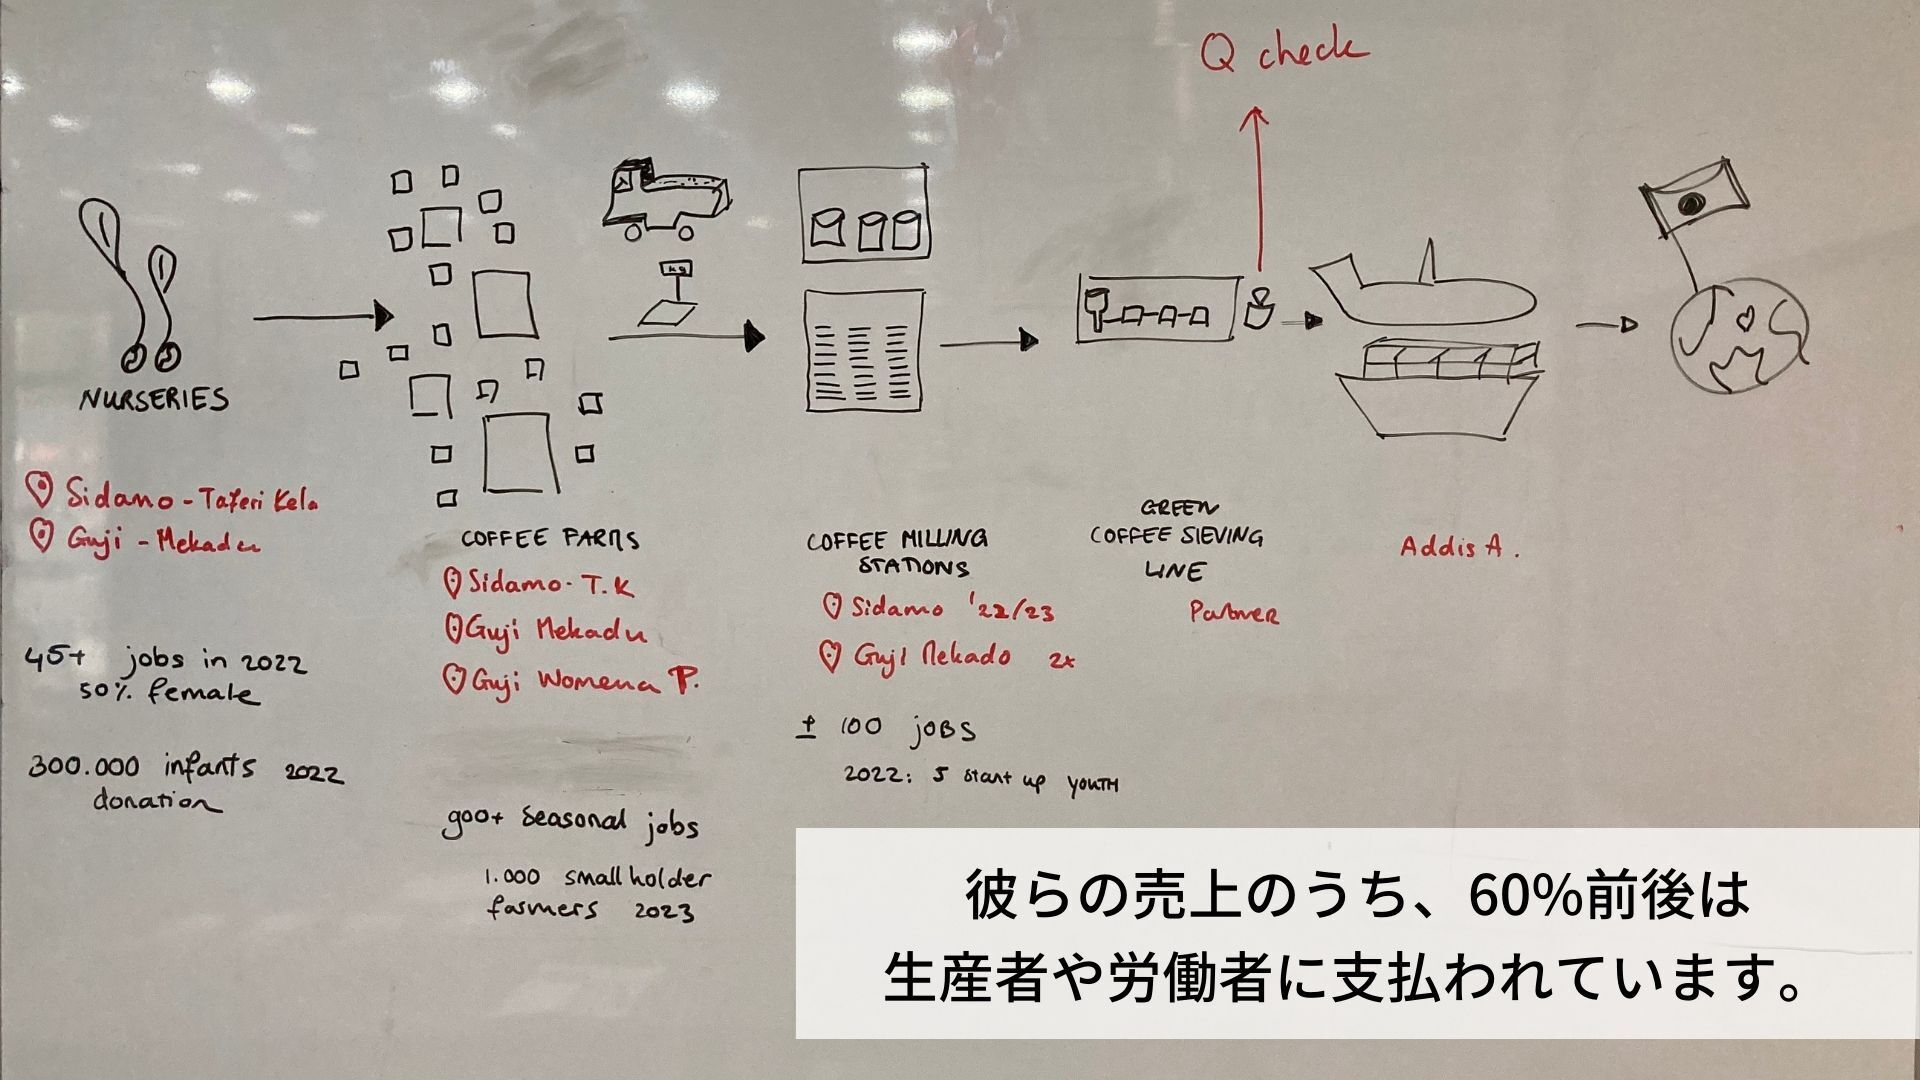 Q check
kg
NURSERIES
Sidamo - Taferi Kela
Guji - Mekadu
45+ jobs in 2022
50% female
300.000 infants 2022
donation
COFFEE FARMS
Sidamo - T.K
Guji Mekadu
Guji Womena P.
900+ seasonal jobs
1.000 smallholder
farmers 2023
COFFEE MILLING
STATIONS
Sidamo '22/23
Guji Mekado 2x
± 100 jOBS
2022: 5 start up YOUTH
GREEN
COFFEE SIEVING
LINE
Partner
Addis A.
彼らの売上のうち、60%前後は
生産者や労働者に支払われています。